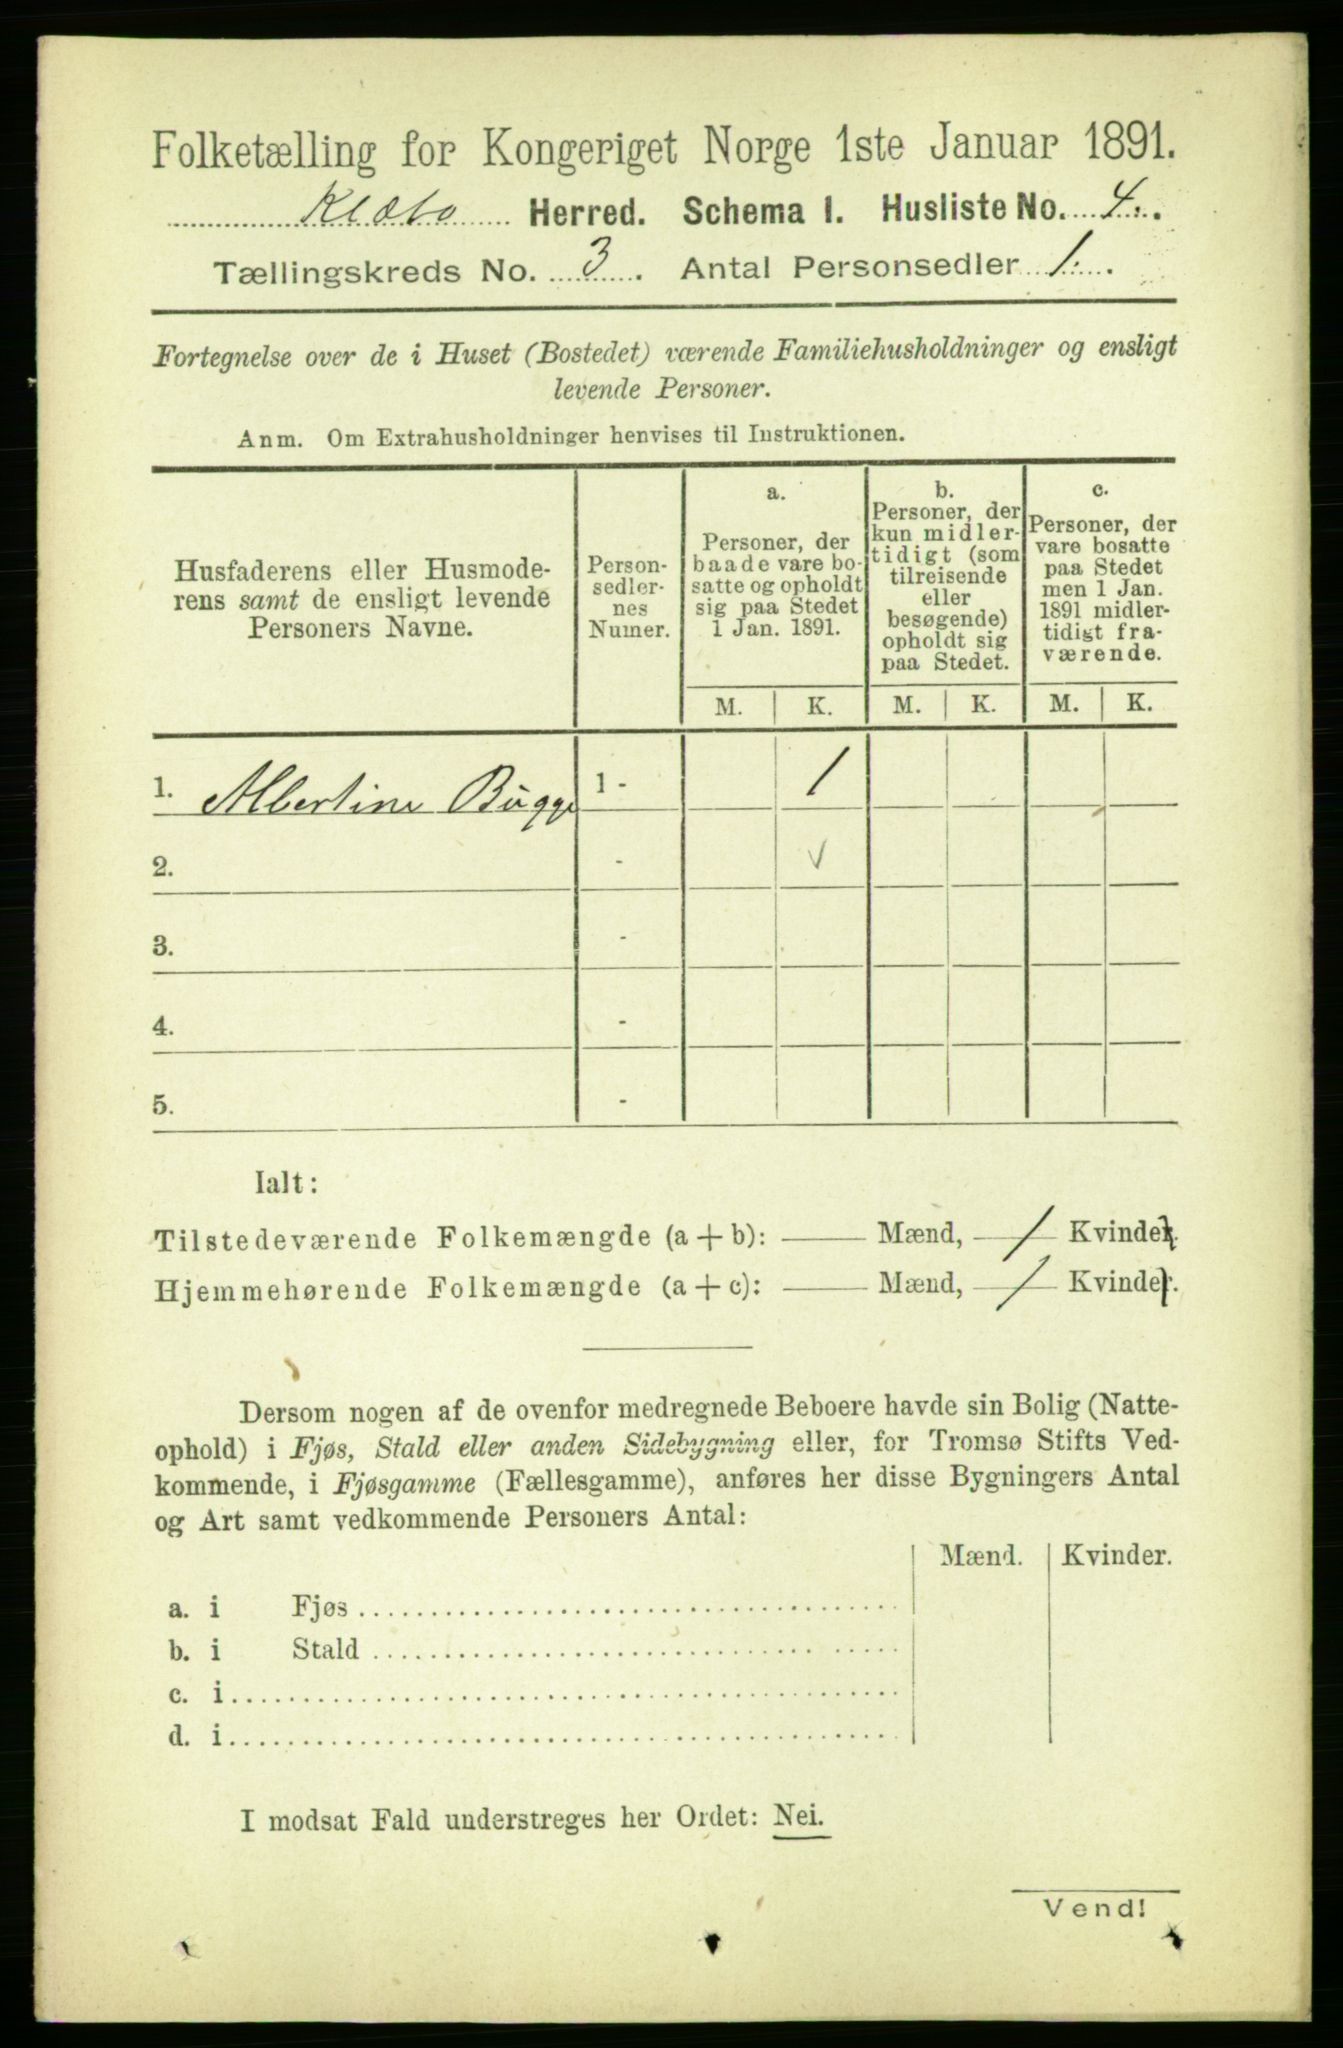 Folketælling for Kongeriget Norge 1ste Januar 1891.
Klæbo Herred. Schema I. Husliste No. 4.
Tællingskreds No. 3. Antal Personsedler 1.
Fortegnelse over de i Huset (Bostedet) værende Familiehusholdninger og ensligt
levende Personer.
Anm. Om Extrahusholdninger henvises til Instruktionen.
Husfaderens eller Husmode-
rens samt de ensligt levende
Personers Navne.
Person-
sedler-
nes
Numer.
a.
Personer, der
baade vare bo-
satte og opholdt
sig paa Stedet
1 Jan. 1891.
b.
Personer, der
kun midler-
tidigt (som
tilreisende
eller
besøgende)
opholdt sig
paa Stedet.
c.
Personer, der
vare bosatte
paa Stedet
men 1 Jan.
1891 midler-
tidigt fra-
værende.
M. K. M. K. M. K.
1. Albertine Bugge 1 - 1
2. - √
3. -
4. -
5. -
Ialt:
Tilstedeværende Folkemængde (a + b): — Mænd, 1 Kvinder.
Hjemmehørende Folkemængde (a + c): — Mænd, 1 Kvinder.
Dersom nogen af de ovenfor medregnede Beboere havde sin Bolig (Natte-
ophold) i Fjøs, Stald eller anden Sidebygning eller, for Tromsø Stifts Ved-
kommende, i Fjøsgamme (Fællesgamme), anføres her disse Bygningers Antal
og Art samt vedkommende Personers Antal:
Mænd. Kvinder.
a. i Fjøs
b. i Stald
c. i
d. i
I modsat Fald understreges her Ordet: Nei.
Vend!